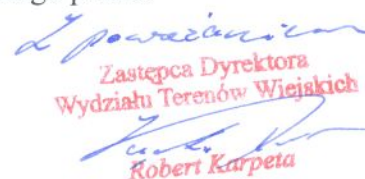 Z poważaniem
Zastępca Dyrektora
Wydziału Terenów Wiejskich
Robert Karpeta